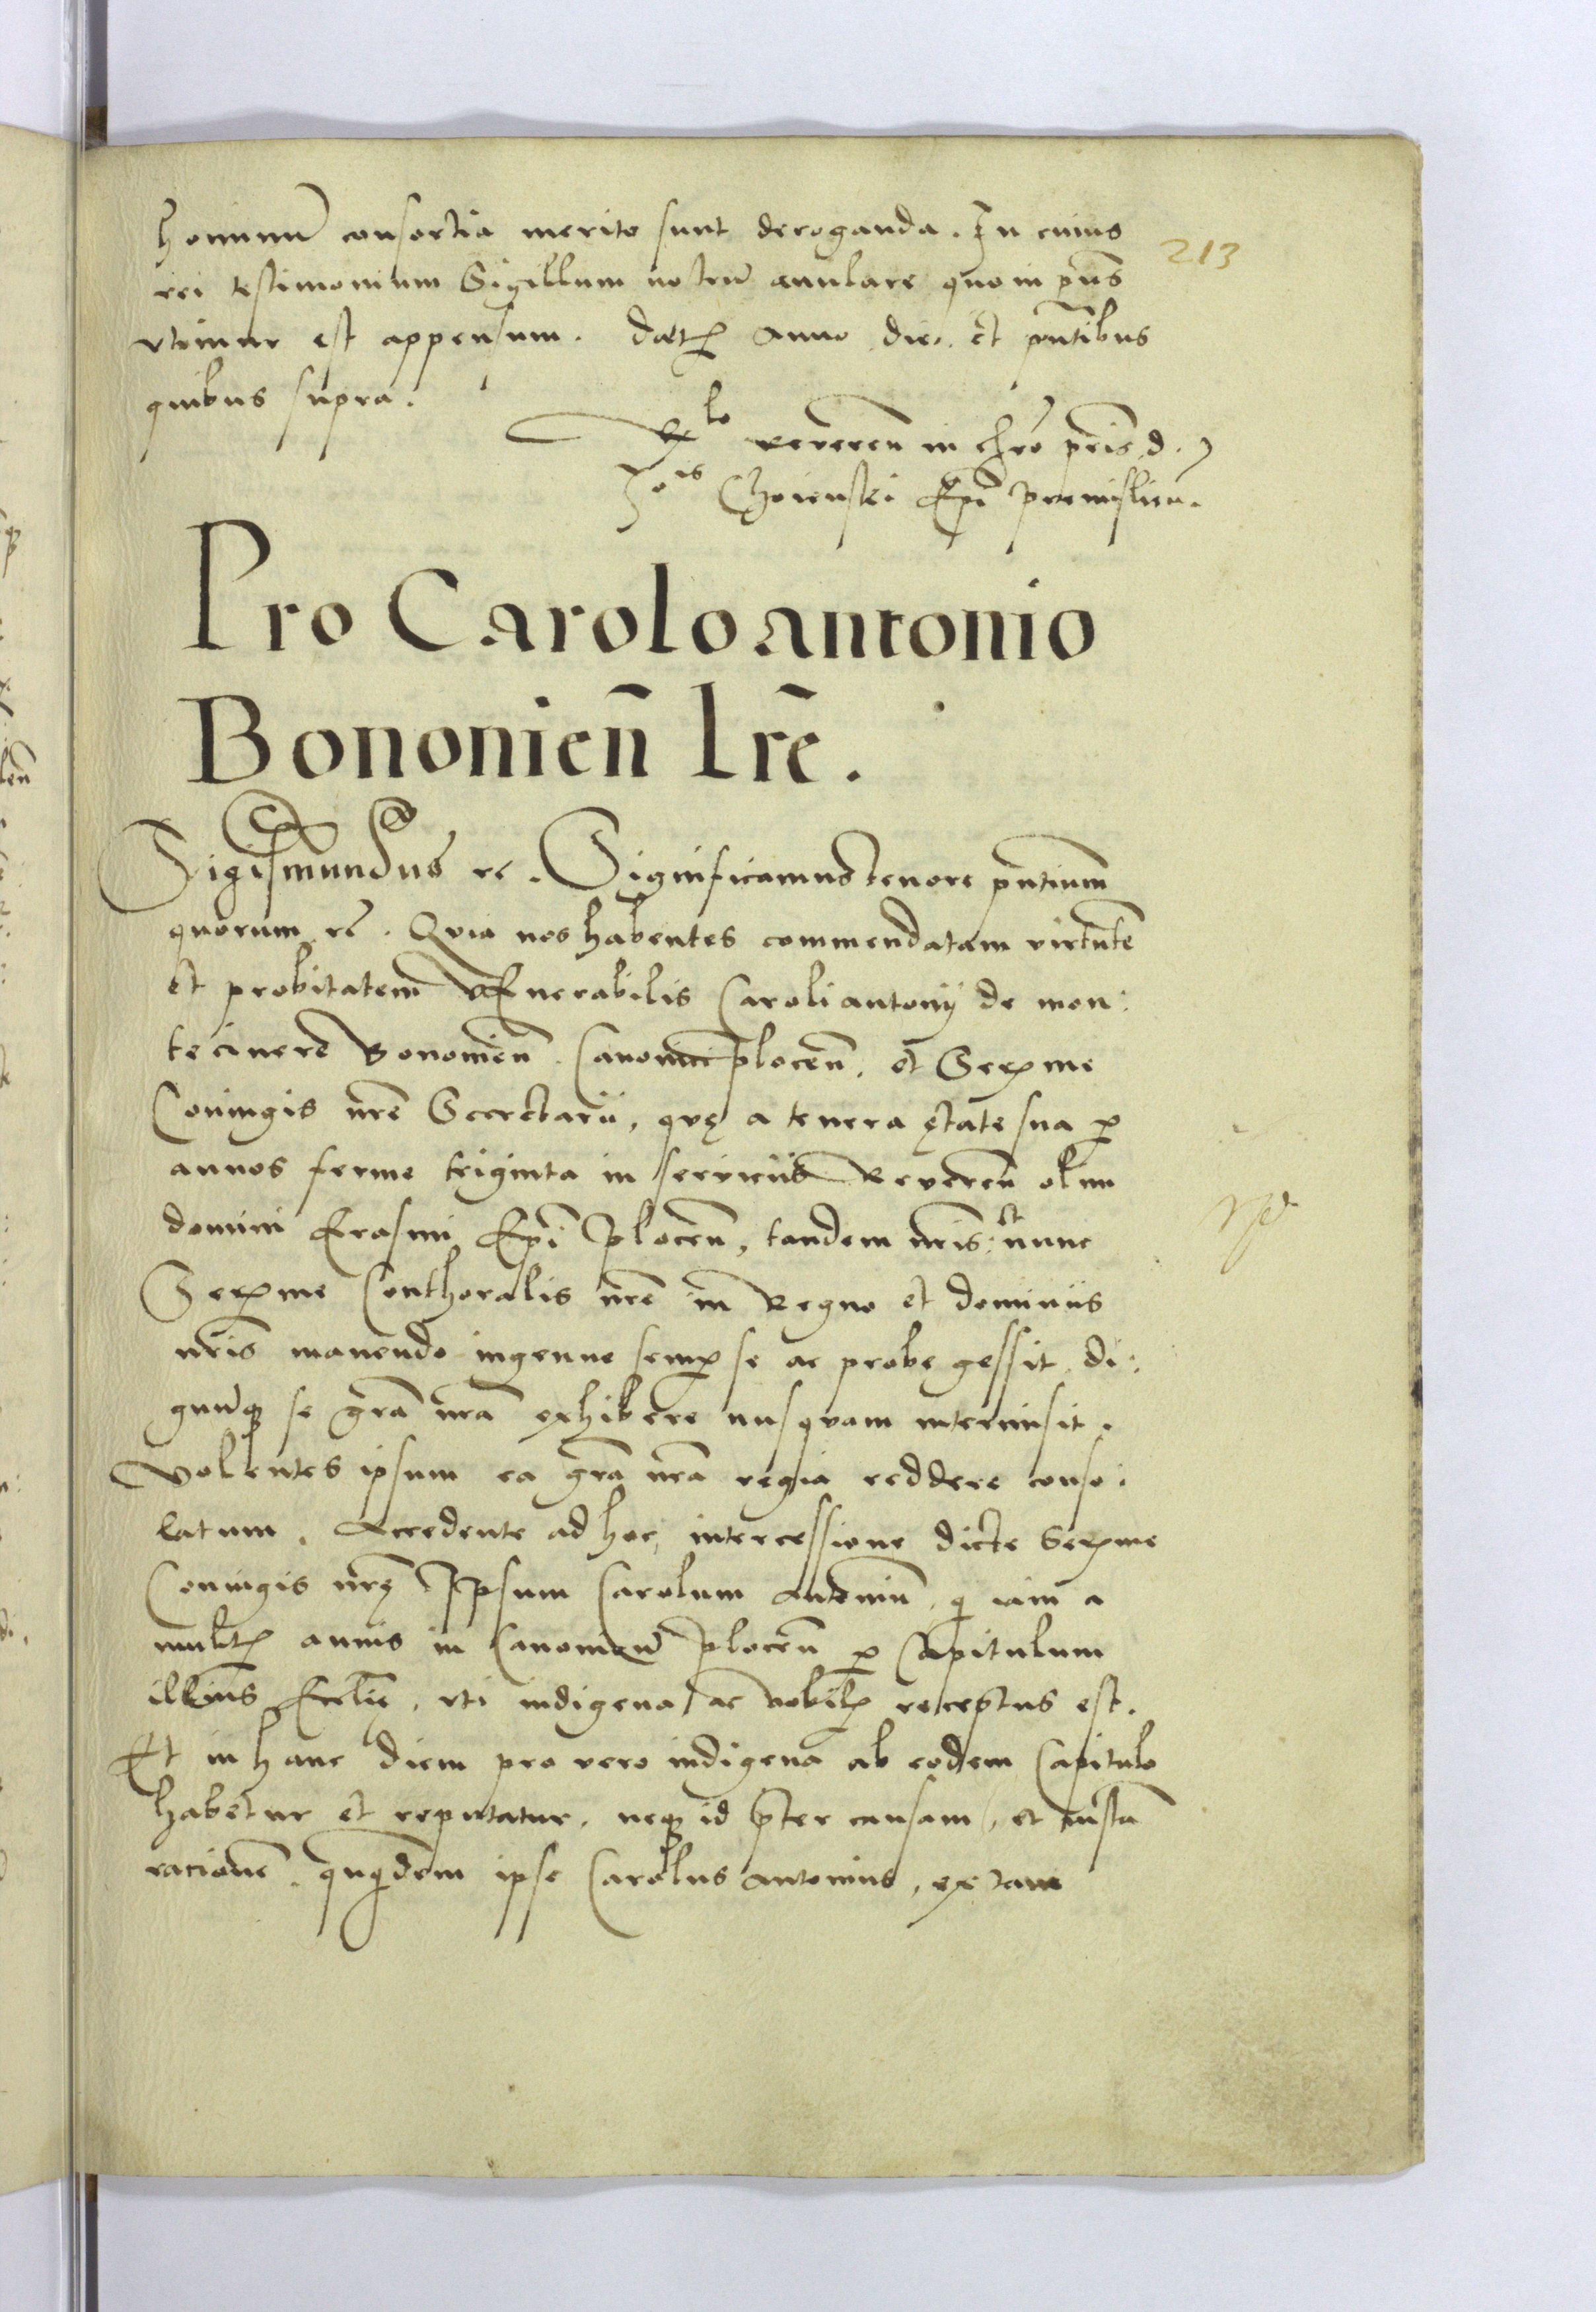 hominũ consortia merito sunt deroganda. In cuius
213
rei testimonium Sigillum nostrũ annulare quo in pñs
vtimur est appensum. datꝭ Anno die. et pñtibus
quibus supra.
Relo reveren in chro pris d.
Jois Choienski Epi premislien.
Pro Carolo antonio
Bononien̄ lr̄e.
Sigismundus rc. Significamus tenore pñtium
quorum rc̃. Quia nos habentes commendatam virtutẽ
et probitatem vEnerabilis Caroli antonij de mon:
te cinere Bononien̄. Canonici plocen̄. et Serme
Coniugis nr̄e Secretarii, quę a tenera ętate sua ꝑ
annos ferme triginta in serviciis Reveren̄ olim
domini Erasmi Ep̄i Plocen̄, tandem nr̄is: et nunc
Serme Conthoralis nr̄e in Regno et dominiis
nr̄is manendo ingenue semꝑ se ac probę gessit di:
gnũqꝫ se gr̄a nr̄a exhibere nusquam intermisit.
Volentes ipsum ea gr̄a nr̄a regia reddere conso:
latum. Accedente ad hoc, intercessione dicte Serme
Coniugis nr̄ę Ipsum Carolum Antoniũ, qi iam a
multꝭ annis in Canonicũ plocen̄ ꝑ Capitulum
illius Eccl̄ię, vti indigena ac nobilꝭ receptus est.
Et in hanc diem pro vero indigena ab eodem Capitulo
habetur et reputatur. neqꝫ id p̄ter causam, et iustã
racionẽ. quqidem ipse Carolus Antonius, ex tam